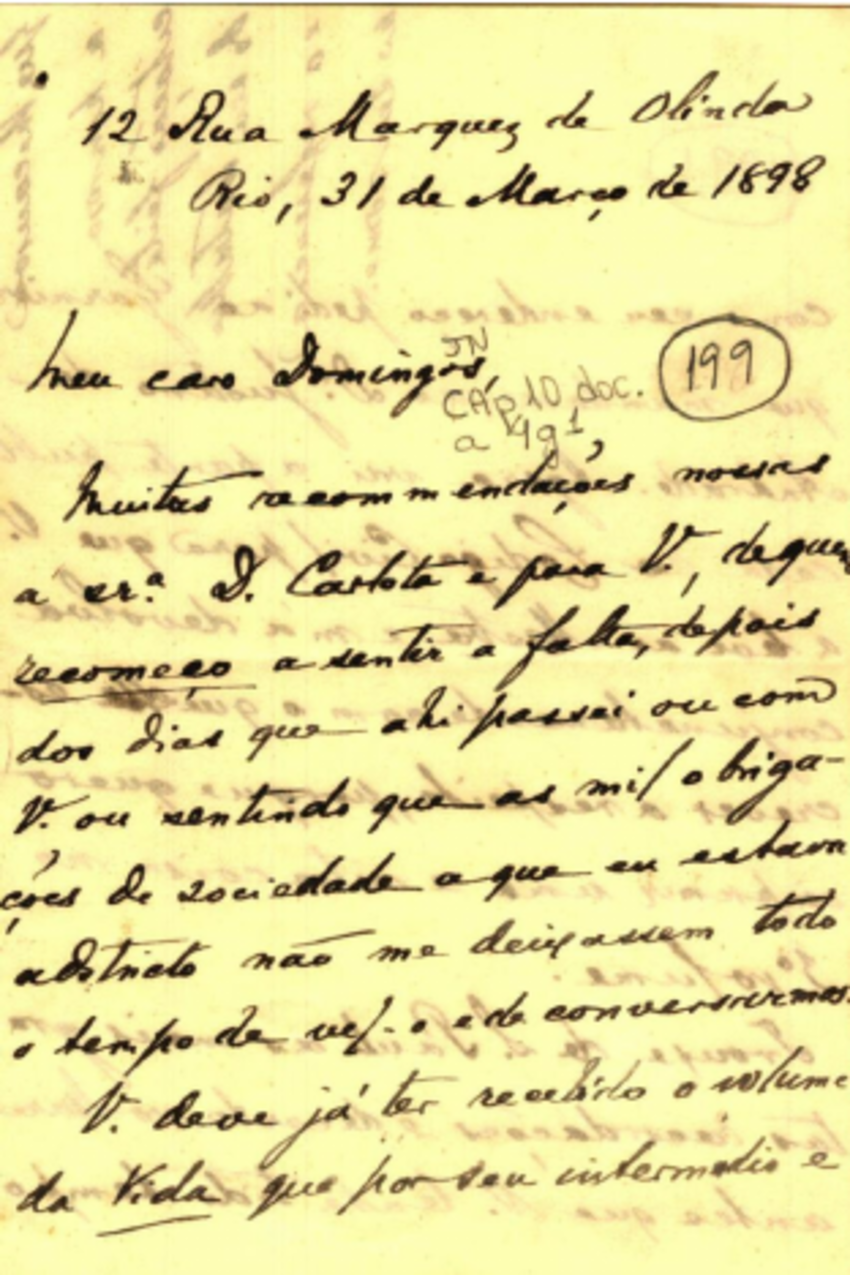 12 Rua Marquez de Olinda
Rio, 31 de Março de 1898
Meu caro Domingos,
JN
CAp10 doc.
a 4g1
199
Muitas recommendações nossas
á sr.ª D. Carlota e para V., de quem
recomeço a sentir a falta, depois
dos dias que ahi passei ou com
V. ou sentindo que as mil obriga-
ções de sociedade a que eu estava
adstricto não me deixassem todo
o tempo de vel-o e de conversarmos.
V. deve já ter recebido o volume
da Vida que por seu intermedio e